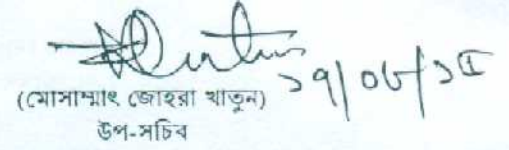 ১৭/০৮/১৫
(মোসাম্মাৎ জোহরা খাতুন)
উপ-সচিব